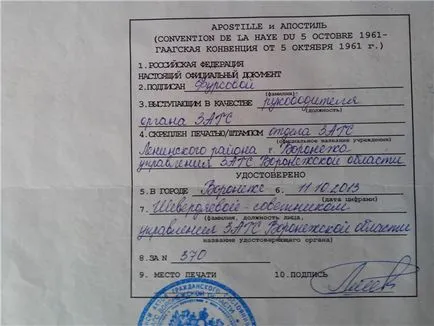 APOSTILLE и АПОСТИЛЬ
(CONVENTION DE LA HAYE DU 5 OCTOBRE 1961-
ГААГСКАЯ КОНВЕНЦИЯ ОТ 5 ОКТЯБРЯ 1961 г.)
1.РОССИЙСКАЯ ФЕДЕРАЦИЯ
НАСТОЯЩИЙ ОФИЦИАЛЬНЫЙ ДОКУМЕНТ
2.ПОДПИСАН Фурсовой
(фамилия)
3.ВЫСТУПАЮЩИМ В КАЧЕСТВЕ руководителя
(должность)
органа ЗАГС
4.СКРЕПЛЕН ПЕЧАТЬЮ/ШТАМПОМ отдела ЗАГС
(официальное название учреждения)
Ленинского района г. Воронежа
управления ЗАГС Воронежской области
УДОСТОВЕРЕНО
5.В ГОРОДЕ Воронеже 6. 11.10.2013
(дата цифрами)
7. Шевердяевой-советником
(фамилия, должность лица,
управления ЗАГС Воронежской области
название удостоверяющего органа)
8.ЗА N 370
9. МЕСТО ПЕЧАТИ 10.ПОДПИСЬ